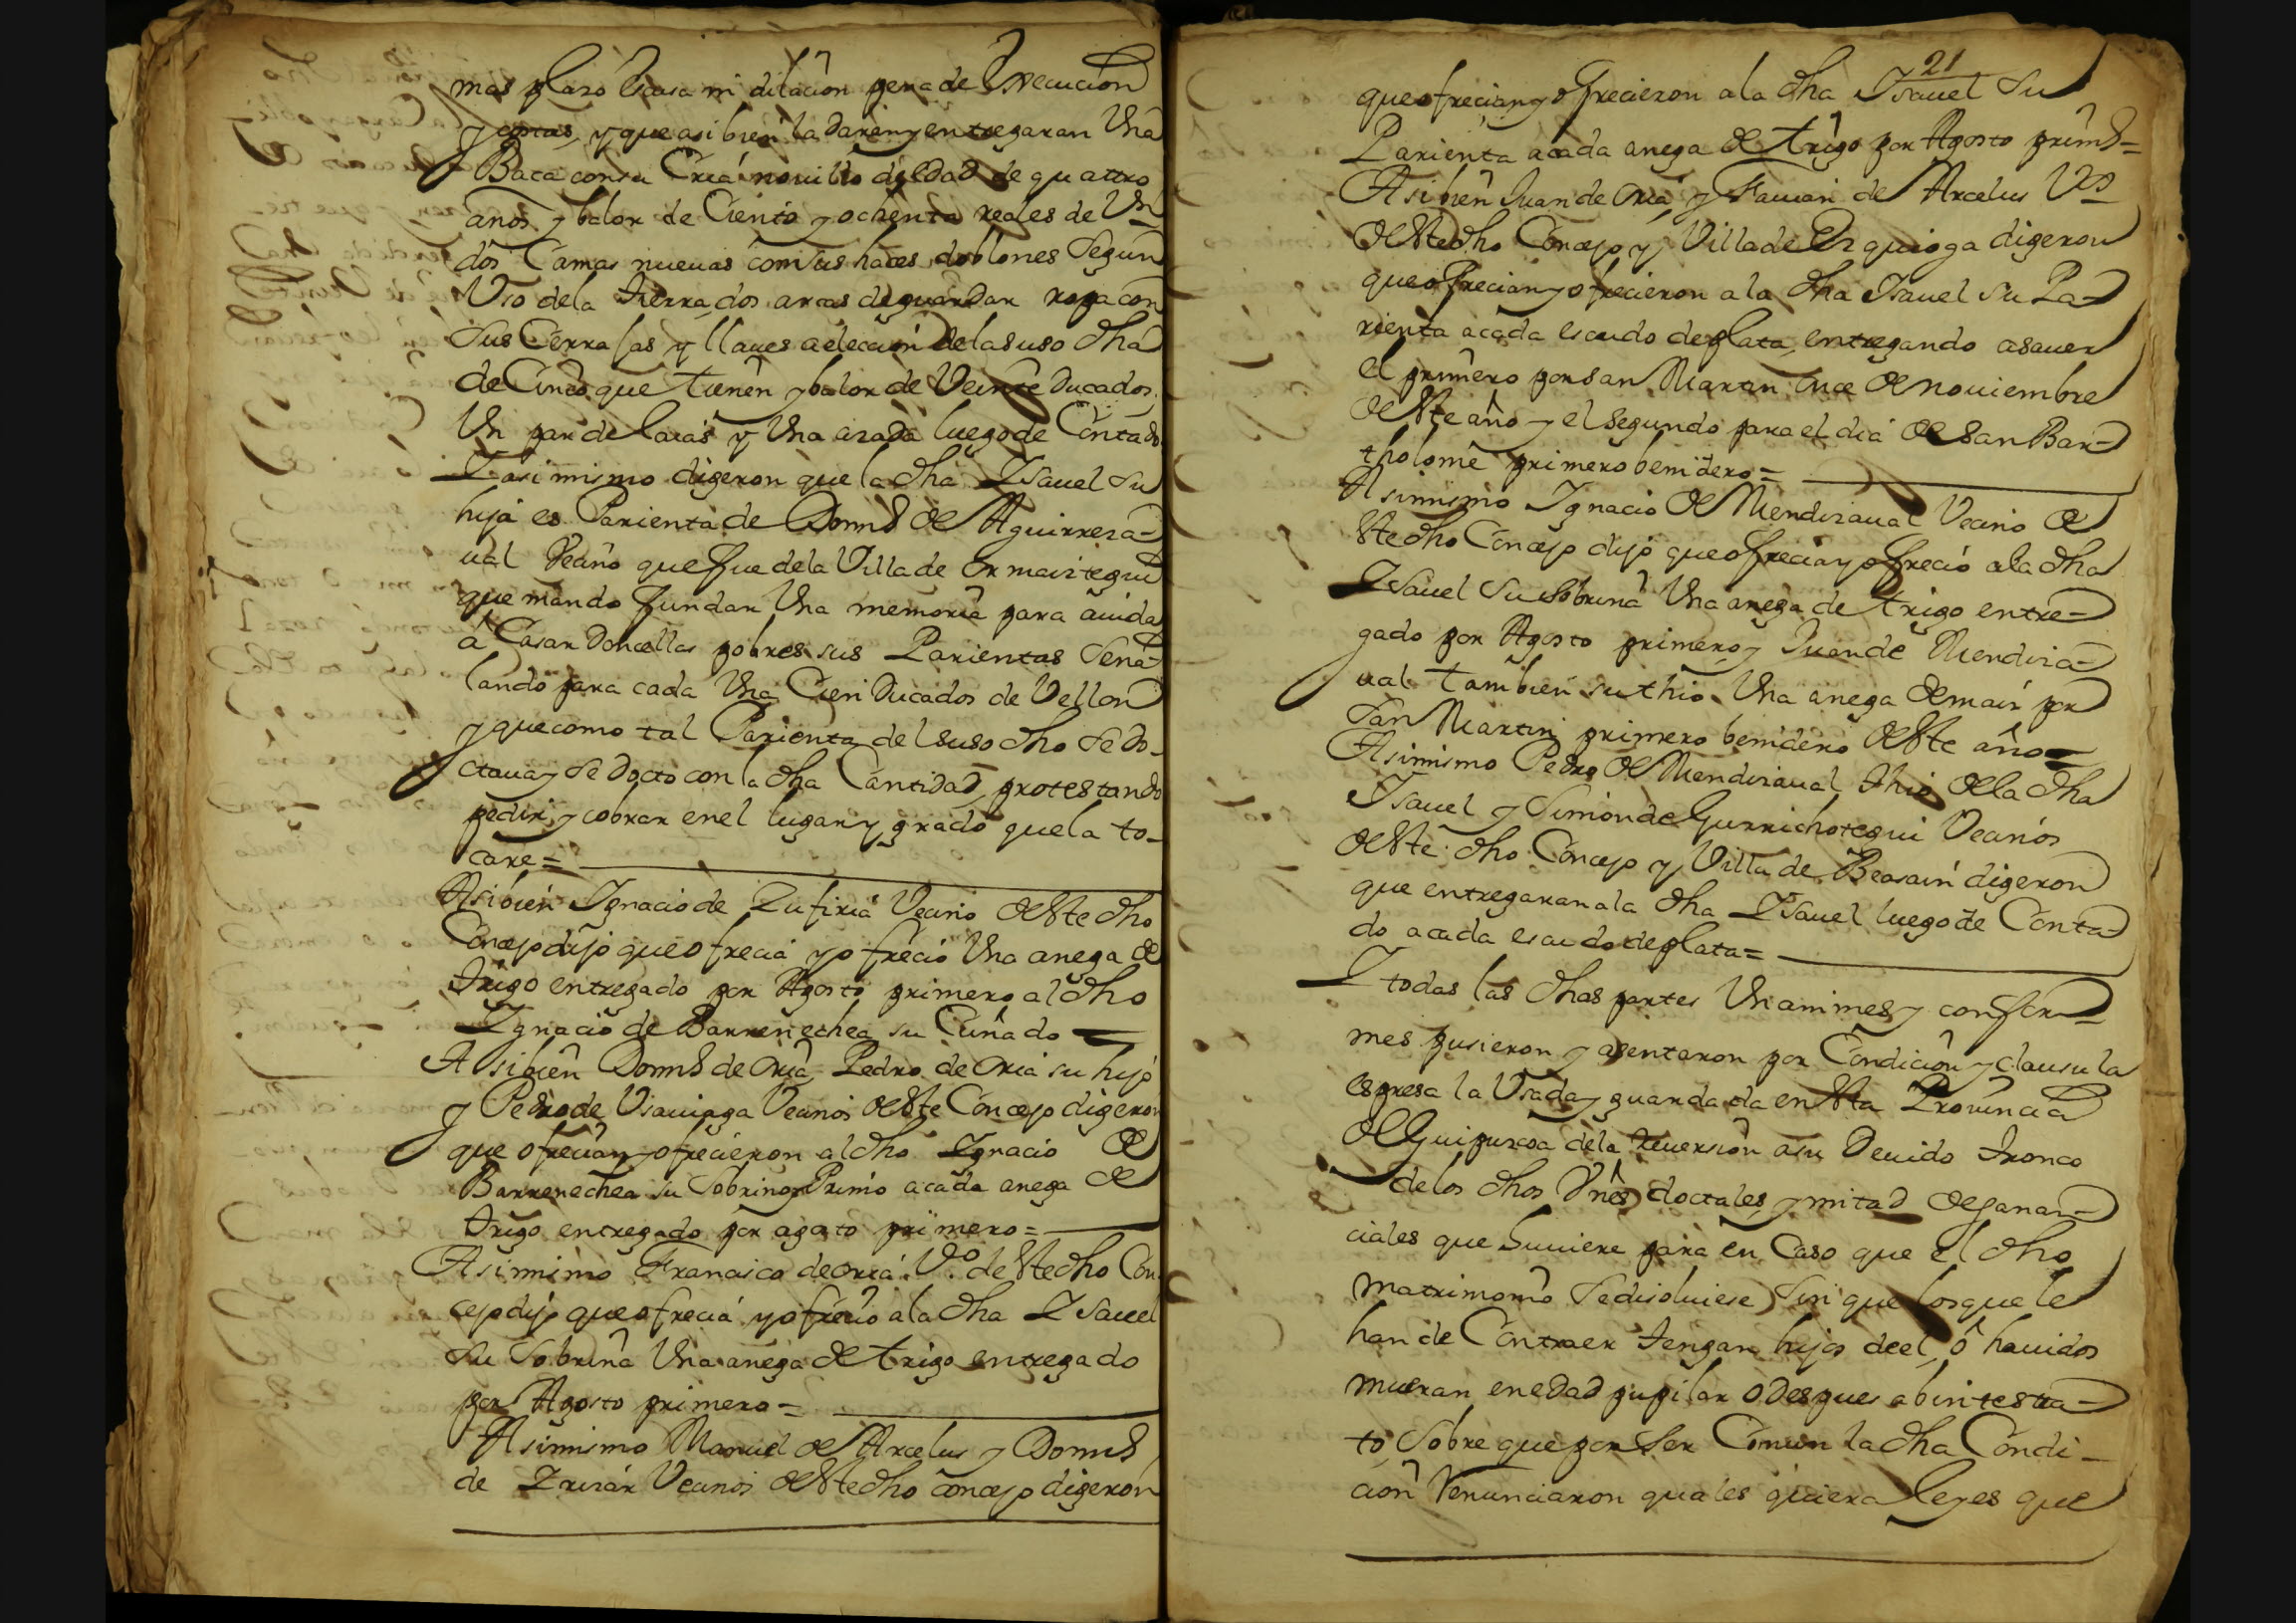 mas plazo escusa ni dilacion pena de Execucion
y costas, y que asi bien la daran y entregaran Una
Baca con su Cria novillo de edad de quattro
años y balor de Ciento y ochenta reales de Vn
dos Camas nueuas con sus haces doblones Segun
Uso dela tierra, dos arcas de guardar ropa con
sus Cerrajas y llaues a eleccion dela suso dha
de Cinco que tienen y balor de Veinte Ducados.
Un par de laias y Una azada luego de Contado
Y asimismo digeron que la dha Ysauel su
hija es Parienta de Domᵒ de Aguirreza-
ual Vecino que fue dela Villa de Ormaiztegui
que mando fundar Una memoria para aiuda
á Casar Doncellas pobres sus Parientas Sena-
lando para cada Una Cien Ducados de Vellon
y que como tal Parienta del suso dho se do-
ctaua y se docto con la dha Cantidad, protestando
pedir y cobrar en el lugar y grado que la to-
care=
Asibien Ygnacio de Zufiria Vecino deste dho
Concejo dijo que ofrecia y ofrecio Una anega de
trigo entregado por Agosto primero al dho
Ygnacio de Barrenechea su Cuñado =
Asibien Domᵒ de Oria, Pedro de Oria su hijo
y Pedro de Usauiaga Vecinos deste Concejo digeron
que ofrecian y ofrecieron al dho Ygnacio de
Barrenechea su Sobrino y Primo acada anega de
trigo entregado por agosto primero=
Asimismo Francisco de Oria Vᵒ. deste dho Con
cejo dijo que ofrecia y ofrecio a la dha Ysauel
su Sobrina Una anega de trigo entregado
por Agosto primero=
Asimismo Manuel de Arcelus y Domᵒ
de Yrizar Vecinos deste dho concejo digeron
21
que ofrecian y ofrecieron a la dha Ysauel su
Parienta acada anega de trigo por Agosto primᵒ=
Asibien Juan de Oria, y Fauian de Arcelus Vᵒˢ
deste dho Concejo y Villa de Ezquioga digeron
que ofrecian y ofrecieron a la dha Ysauel su Pa-
rienta acada escudo de plata, entregando asauer
el primero por San Martin once de nouiembre
deste año y el segundo para el dia de San Bar-
tholome primero benidero=
Asimismo Ygnacio de Mendizaual Vecino de
ste dho Concejo dijo que ofrecia y ofrecio a la dha
Ysauel su sobrina Una anega de trigo entre-
gado por Agosto primero, y Juan de Mendiza-
ual tambien su thio Una anega de maiz por
San Martin primero benidero deste año=
Asimismo Pedro de Mendizaual thio de la dha
Ysauel y Simon de Gurrichotegui Vecinos
deste dho Concejo y Villa de Beasain digeron
que entregaran a la dha Ysauel luego de Conta-
do acada escudo de plata=
Y todas las dhas partes Unanimes y confor-
mes pusieron y asentaron por Condicion y clausula
espresa la Usada y guardada en esta Prouincia
de Guipuzcoa de la reuersion a su Deuido tronco
de los dhos Vnes doctales, y mitad de ganan-
ciales que huuiere para en Caso que el dho
matrimonio se disoluiese sin que los que le
han de Contraer tengan hijos de el, ó hauidos
mueran en edad pupilar o despues abintesta-
to, Sobre que por Ser Comun la dha Condi-
cion renunciaron quales quiera leyes que